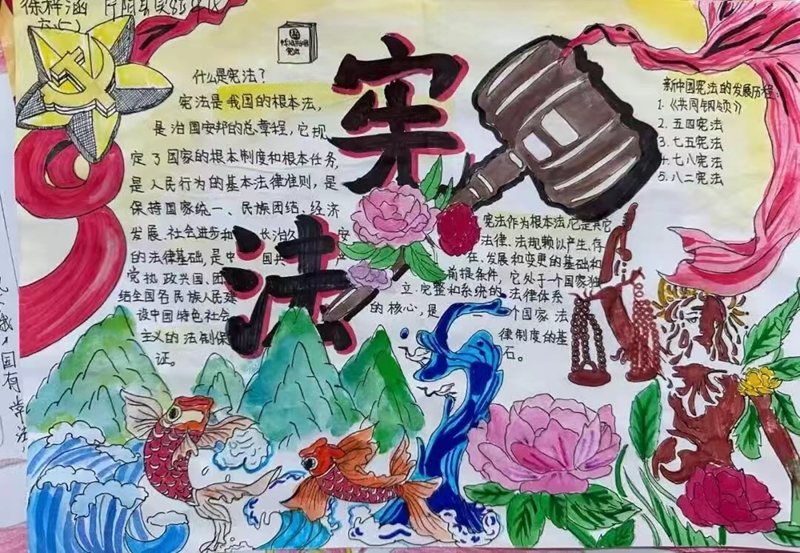 徐梓涵
六(二)
什么是宪法?
宪法是我国的根本法,
是治国安邦的总章程,它规
定了国家的根本制度和根本任务,
是人民行为的基本法律准则,是
保持国家统一、民族团结、经济
发展、社会进步和 长治久 安
的法律基础,是中 国共 产
党执政兴国、团
结全国各民族人民建
设中国特色社会
主义的法制保
证。
宪
法
新中国宪法的发展历程:
1.《共同纲领》
2.五四宪法
3.七五宪法
4.七八宪法
5.八二宪法
宪法作为根本法,它是其它
法律、法规赖以产生、存
在、发展和变更的基础和
前提条件,它处于一个国家独
立、完整和系统的法律体系
的核心,是 一个国家法
律制度的基
石。